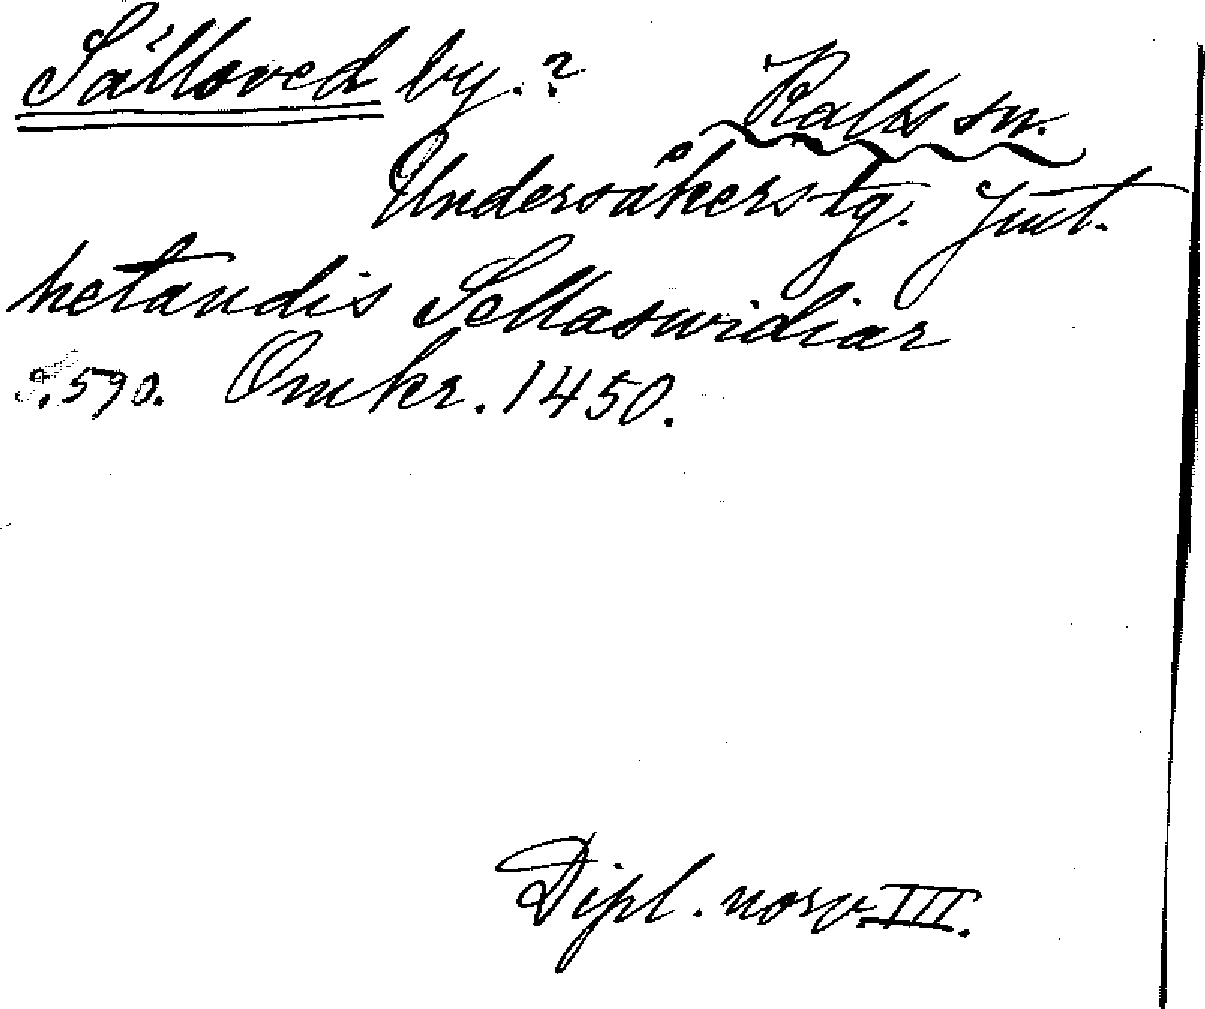 Sålloved by.? Kalls sn.
Undersåkers tg. Jmt.
hetandis Sellaswidiar
s. 590. Omkr. 1450.
Dipl. norv. III.